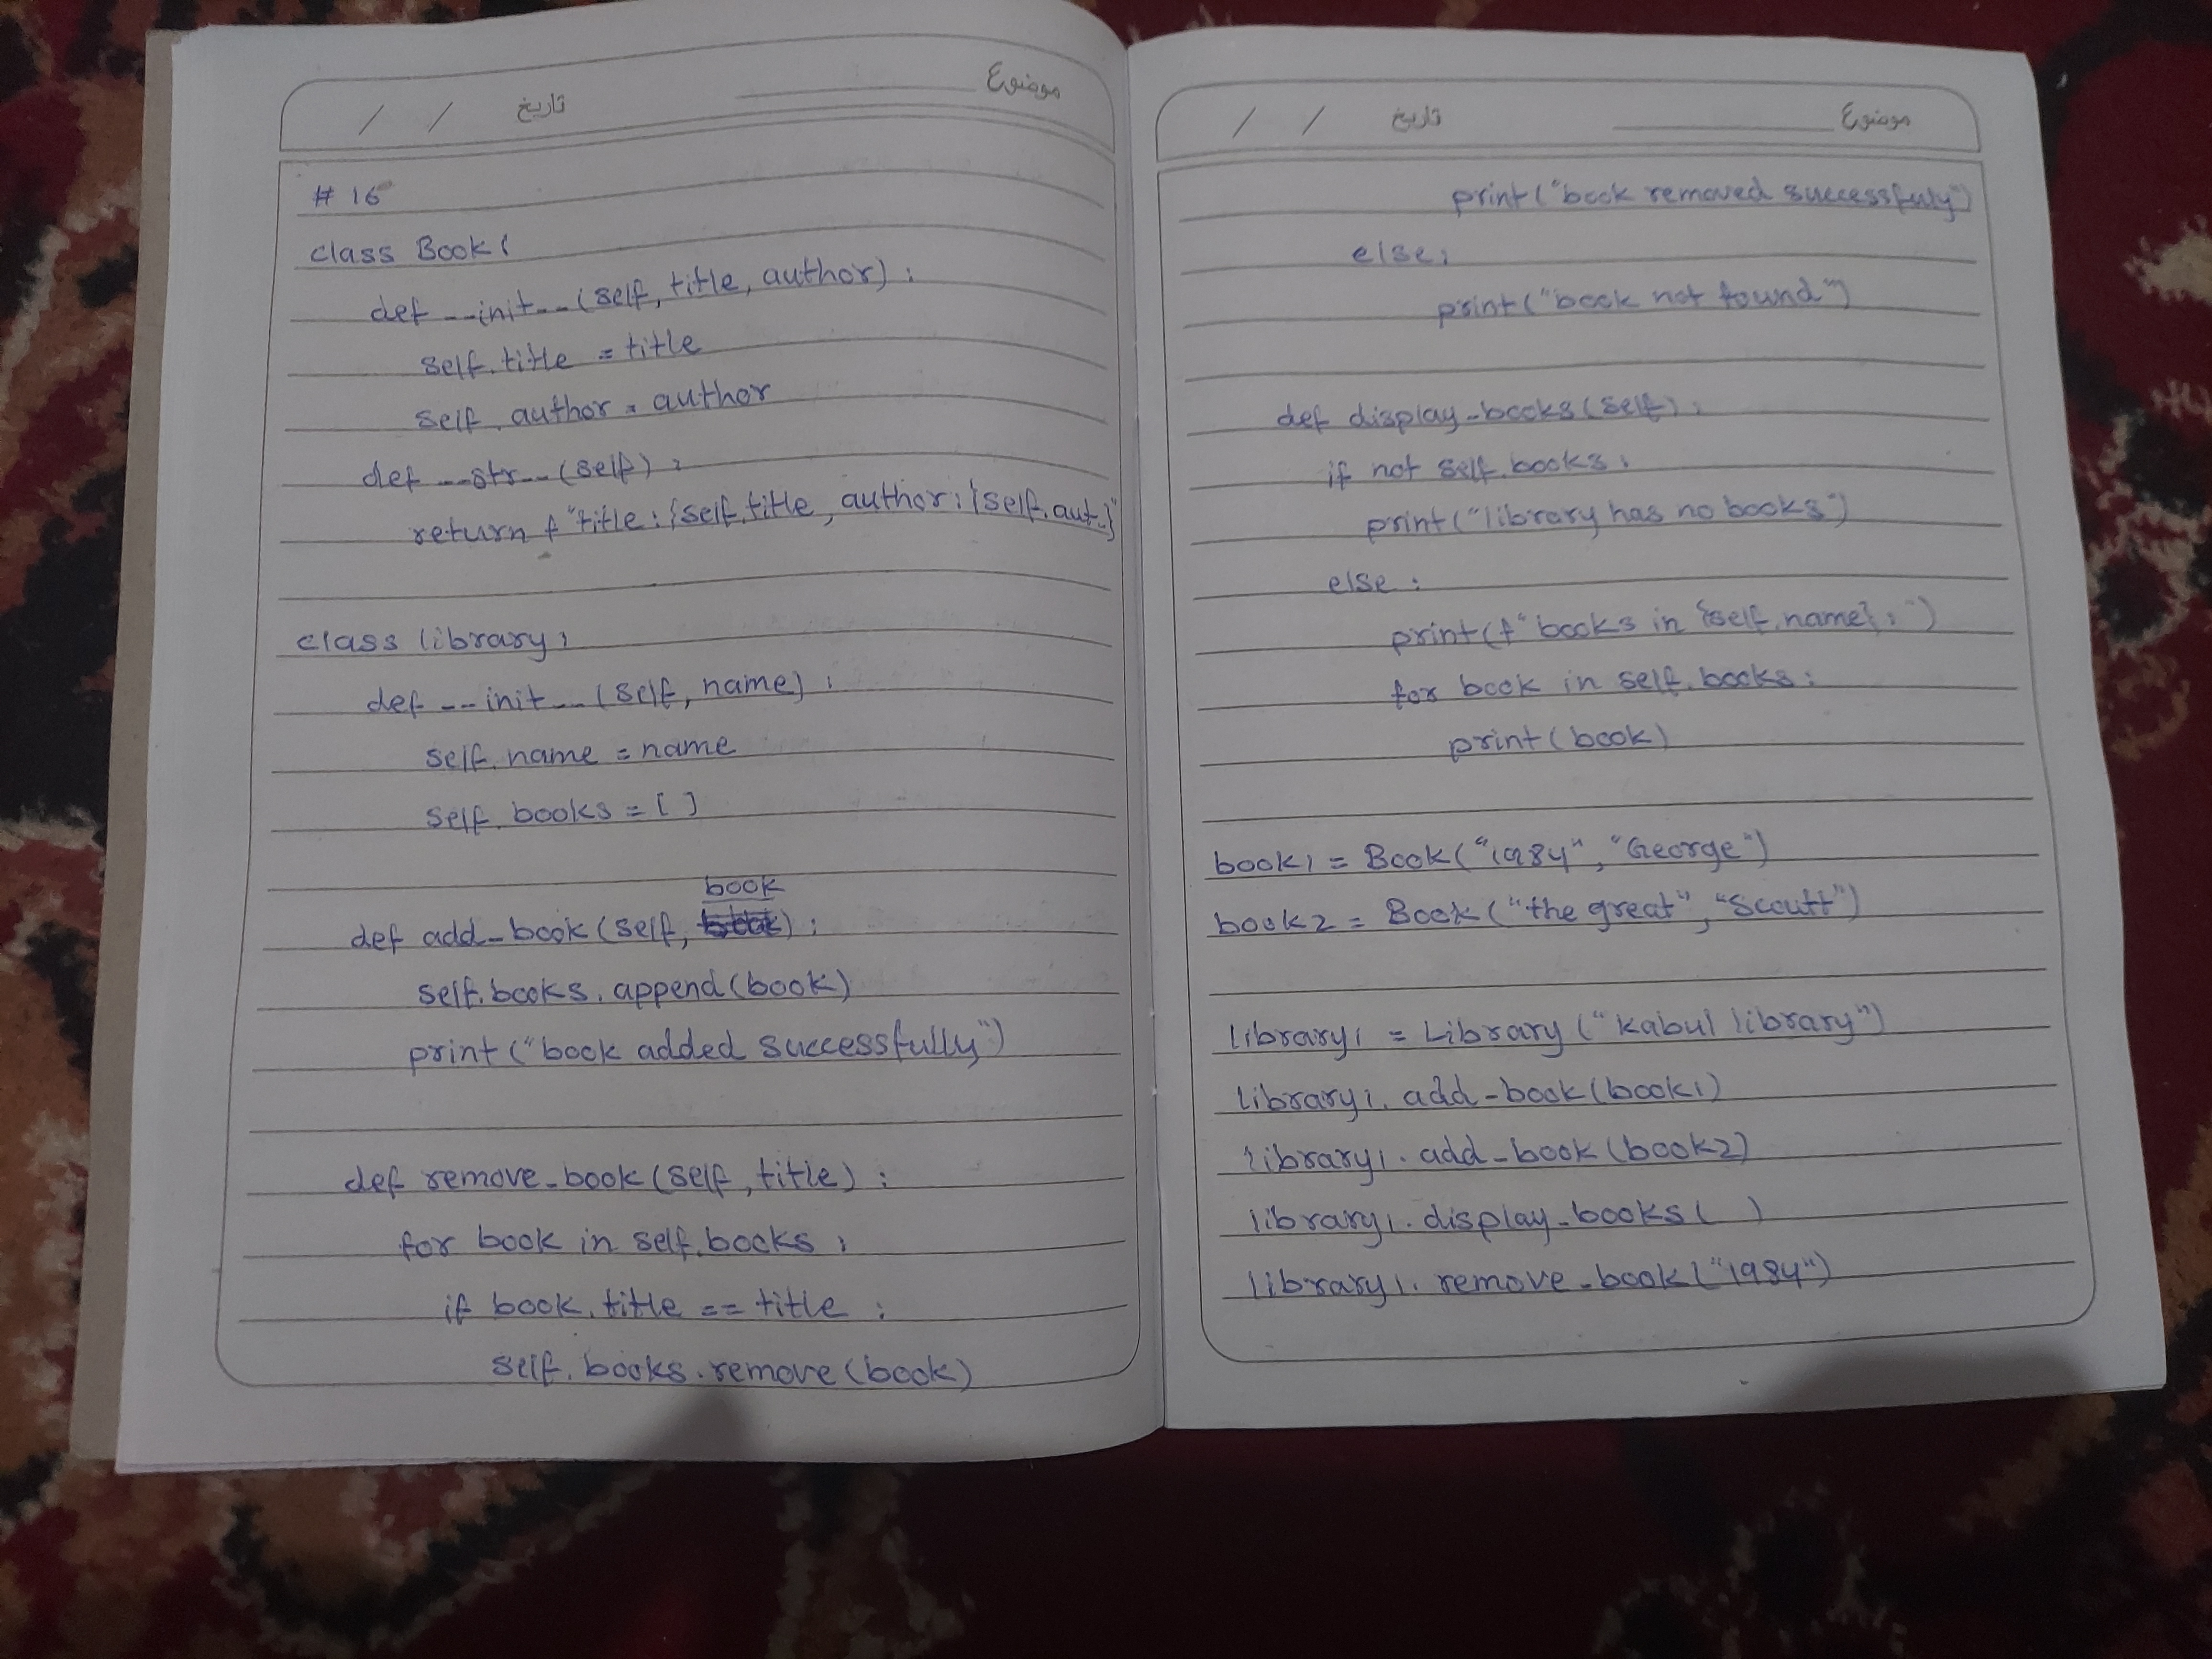 / / تاریخ
موضوع
# 16
class Book:
def __init__(self, title, author):
self.title = title
self.author = author
def __str__(self):
return f "title:{self.title, author:{self.aut.}"
class library:
def __init__(self, name):
self.name = name
self.books = [ ]
book
def add_book(self, book):
self.books.append(book)
print("book added successfully")
def remove_book(self, title):
for book in self.books:
if book.title == title:
self.books.remove(book)
/ / تاریخ
موضوع
print("book removed successfully")
else:
print("book not found")
def display_books(self):
if not self.books:
print("library has no books")
else:
print(f"books in {self.name}:")
for book in self.books:
print(book)
book1 = Book("1984", "George")
book2 = Book("the great", "Scoutt")
library1 = Library("kabul library")
library1.add_book(book1)
library1.add_book(book2)
library1.display_books( )
library1.remove_book("1984")